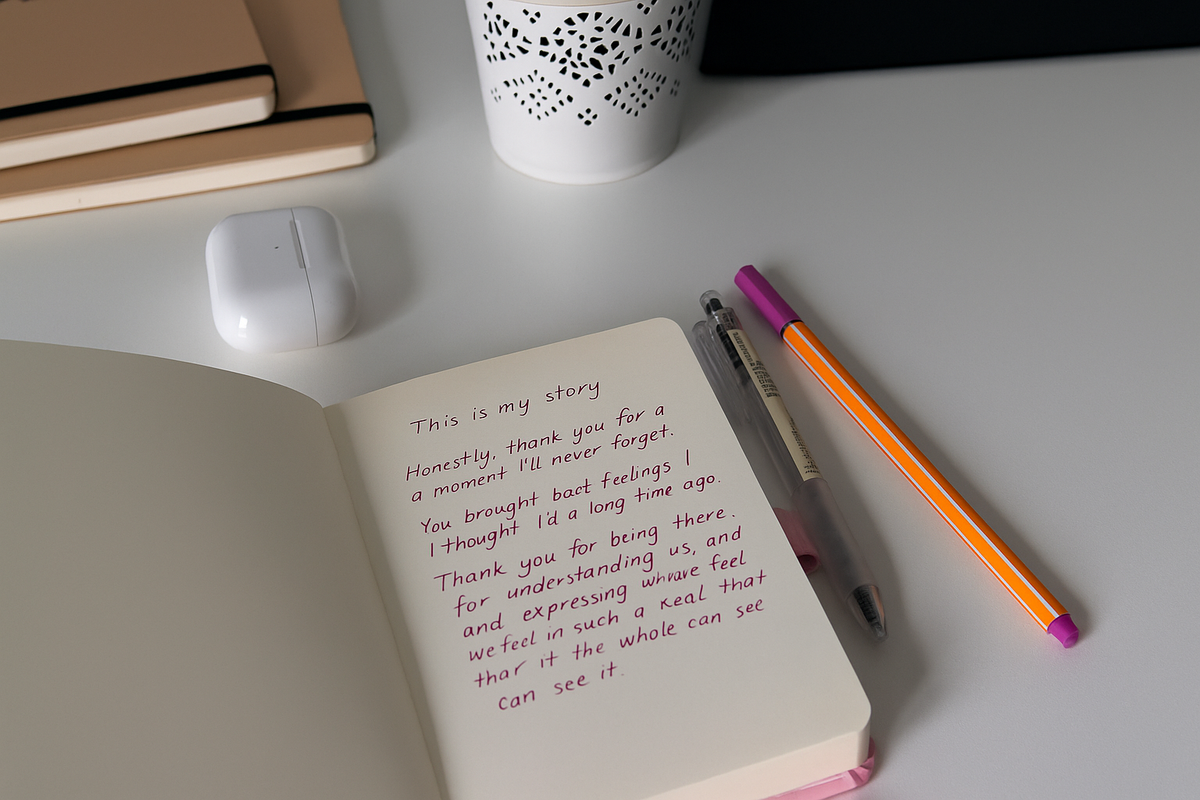 This is my story
Honestly, thank you for a
a moment I'll never forget.
You brought bact feelings I
I thought I'd a long time ago.
Thank you for being there.
for understanding us, and
and expressing feel
we feel in such a that
it the whole can see
can see it.